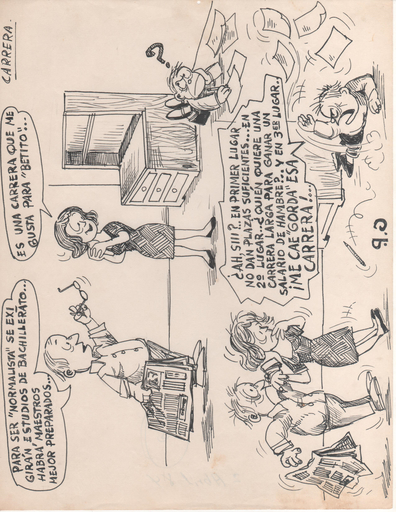 CARRERA.
PARA SER "NORMALISTA" SE EXI
GIRÁN ESTUDIOS DE BACHILLERATO...
HABRÁ MAESTROS
MEJOR PREPARADOS...
ES UNA CARRERA QUE ME
GUSTA PARA "BETITO"!...
?
¿AH, SIII?.. EN PRIMER LUGAR
NO DAN PLAZAS SUFICIENTES... EN
2º LUGAR..¿QUIEN QUIERE UNA
CARRERA LARGA PARA GANAR UN
SALARIO DE HAMBRE?. Y EN 3ER LUGAR.
¡ME CAE "GRODA" ESA
CARRERA!...